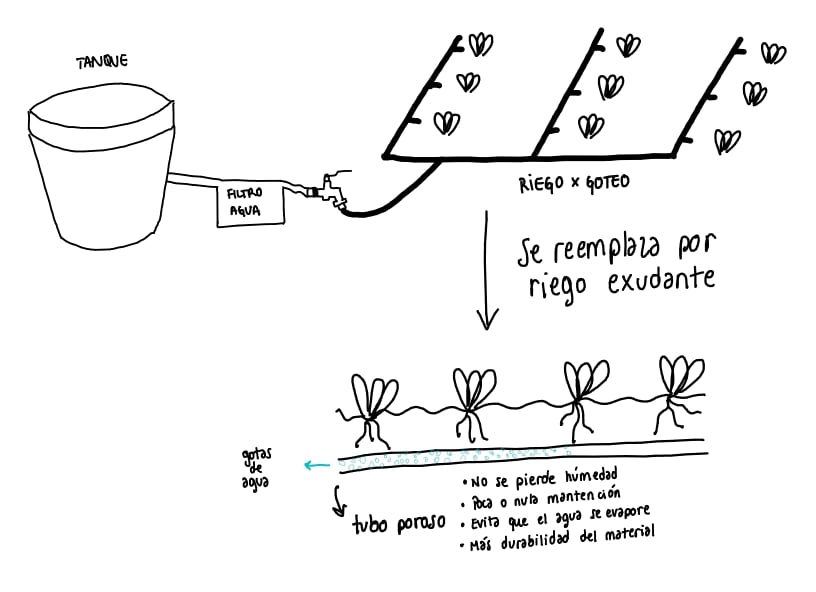 TANQUE
FILTRO
AGUA
RIEGO x GOTEO
Se reemplaza por
riego exudante
gotas
de
agua
tubo poroso
• No se pierde húmedad
• Poca o nula mantención
• Evita que el agua se evapore
• Más durabilidad del material